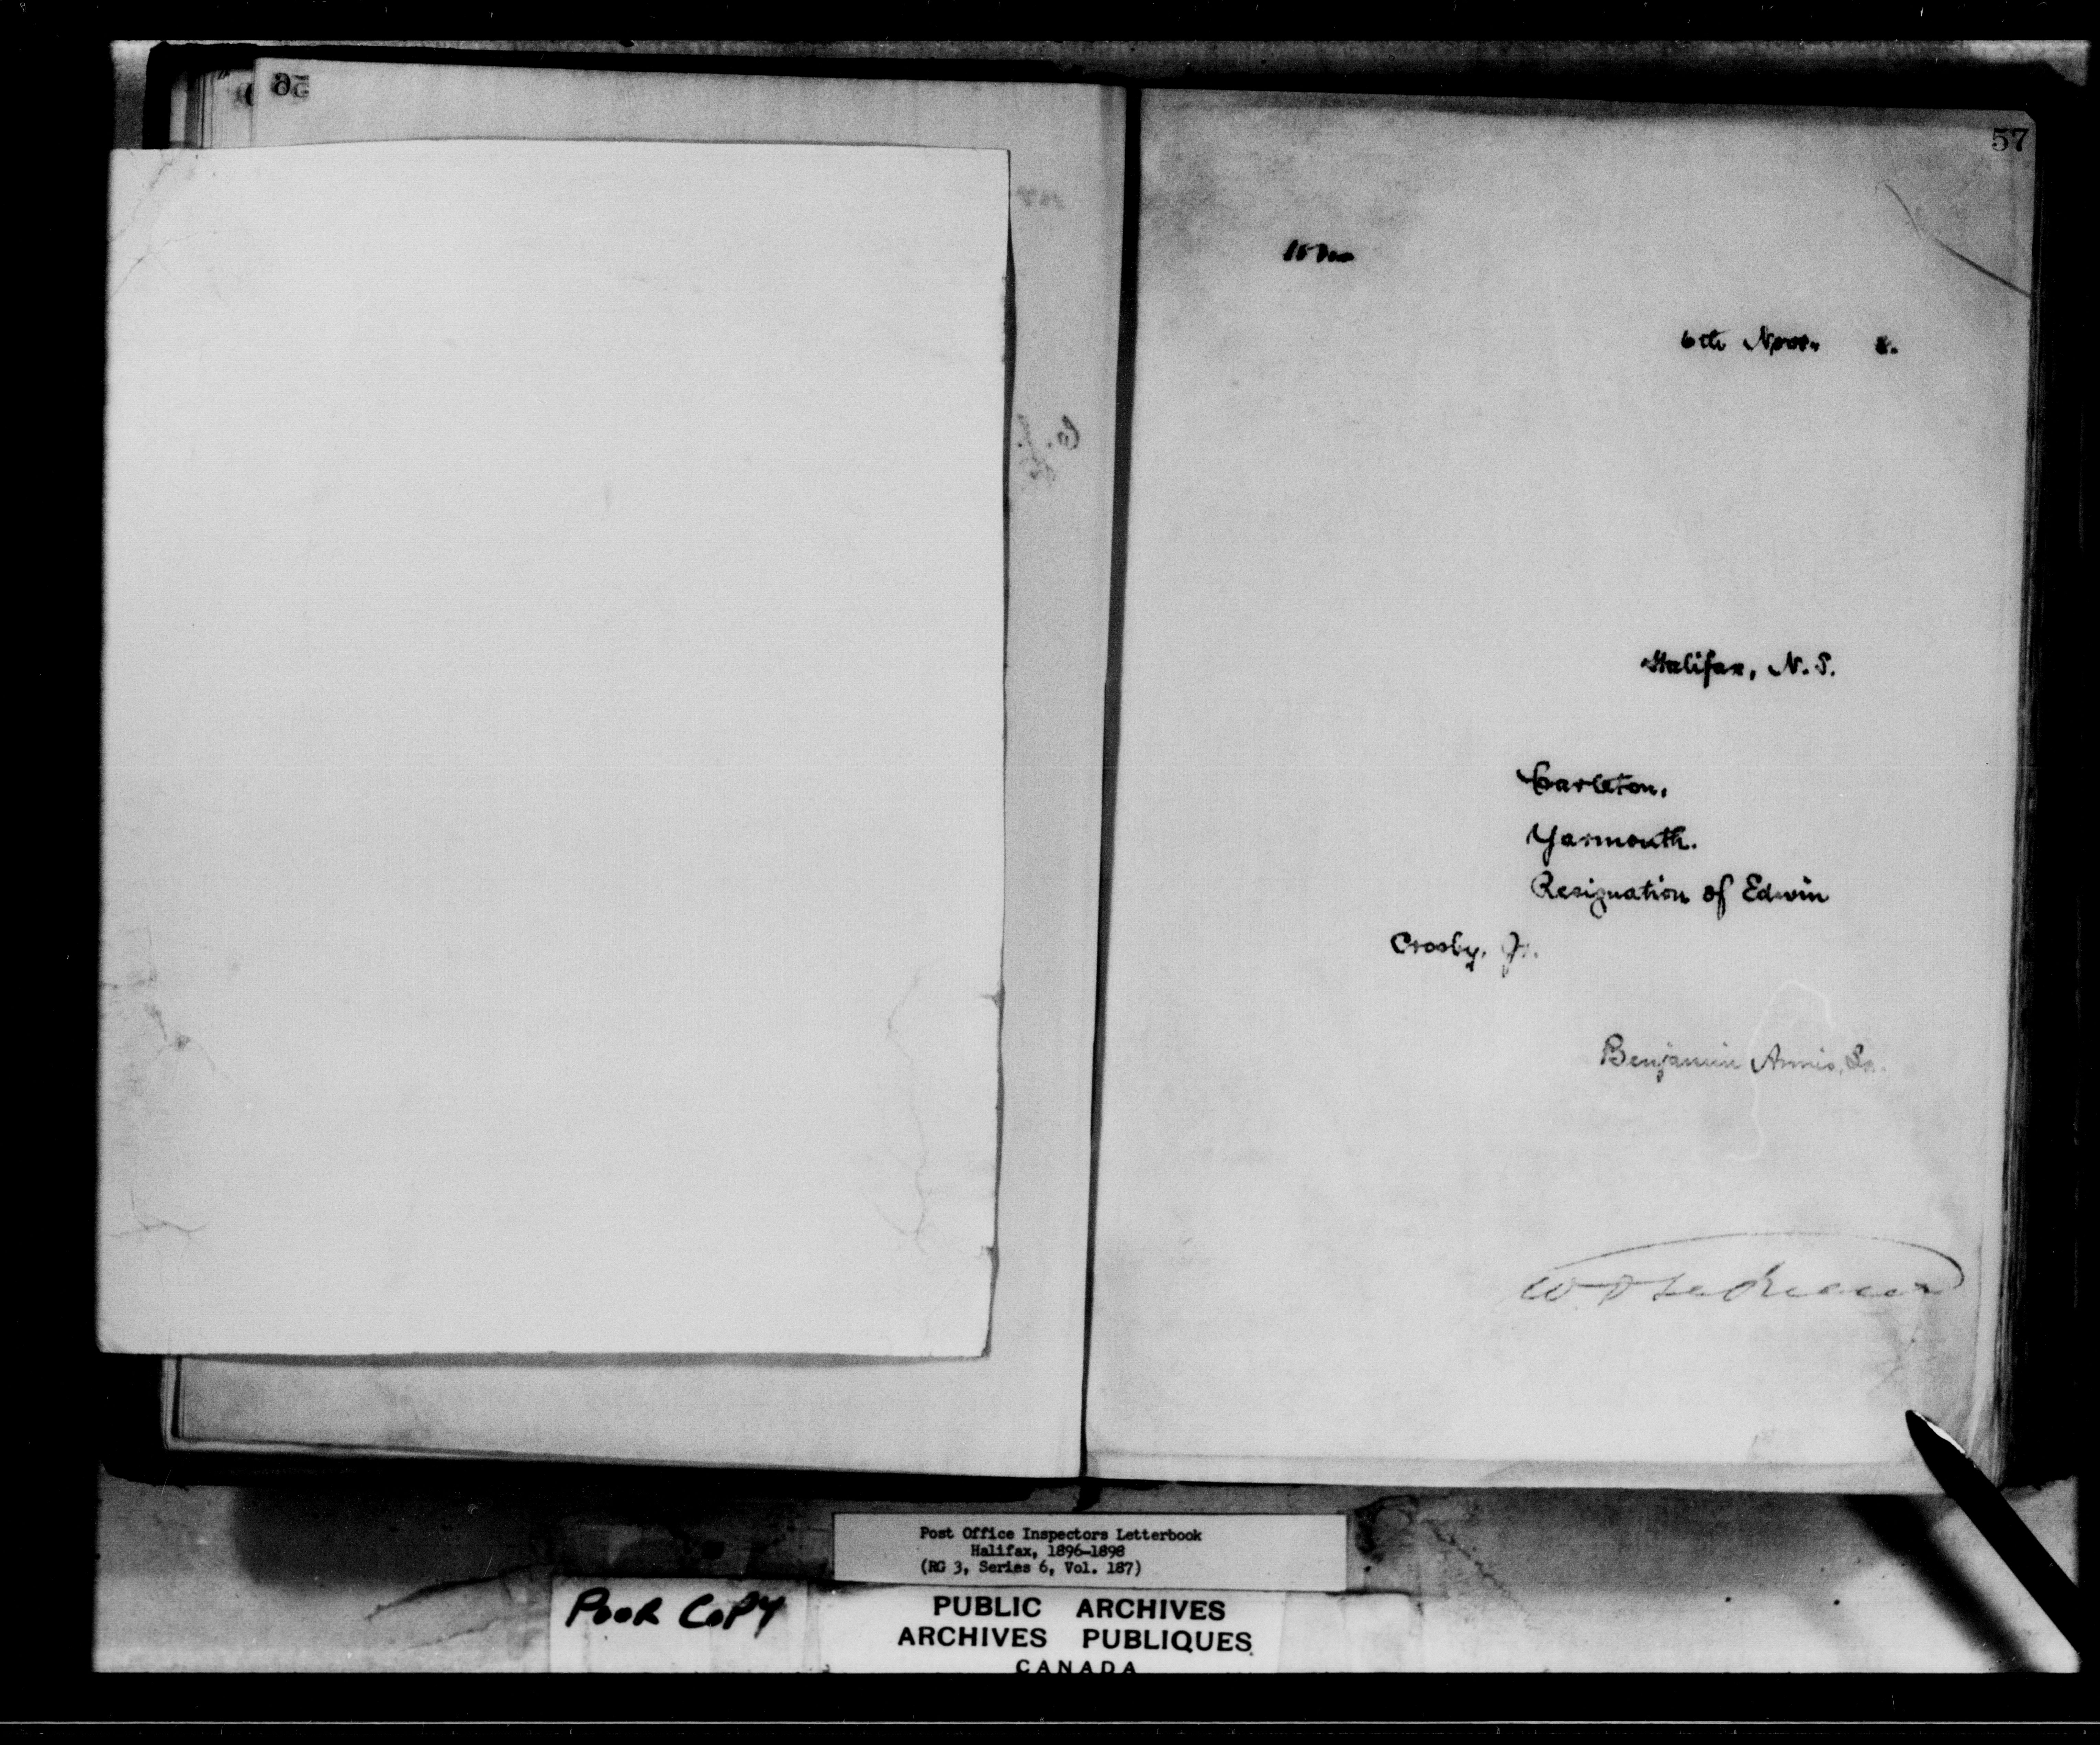 56
57
6th Novr. 6.
Halifax, N.S.
Carleton,
Yarmouth.
Resignation of Edwin
Crosby, Jr.
Benjamin Annis, Sr.
Post Office Inspectors Letterbook
Halifax, 1896-1898
(RG 3, Series 6, Vol. 187)
POOR COPY
PUBLIC ARCHIVES
ARCHIVES PUBLIQUES
CANADA